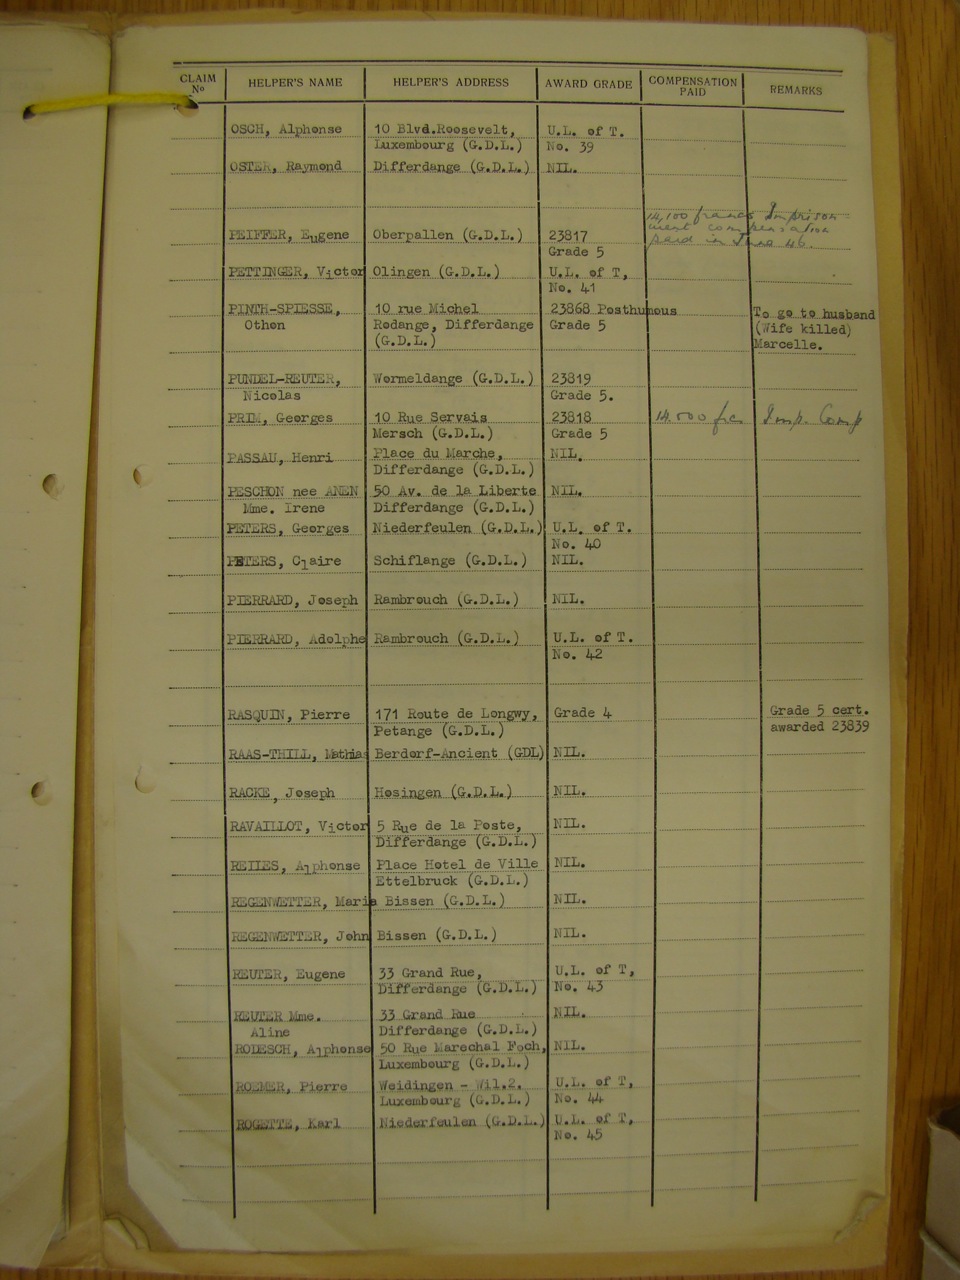 CLAIM No HELPER'S NAME HELPER'S ADDRESS AWARD GRADE COMPENSATION PAID REMARKS
OSCH, Alphonse 10 Blvd.Roosevelt, U.L. of T.
Luxembourg (G.D.L.) No. 39
OSTER, Raymond Differdange (G.D.L.) NIL.
14,100 francs Imprison
ment compensation
PEIFFER, Eugene Oberpallen (G.D.L.) 23817 paid in June 46.
Grade 5
PETTINGER, Victor Olingen (G.D.L.) U.L. of T,
No. 41
PINTH-SPIESSE, 10 rue Michel 23868 Posthumous To go to husband
Othon Rodange, Differdange Grade 5 (Wife killed)
(G.D.L.) Marcelle.
PUNDEL-REUTER, Wormeldange (G.D.L.) 23819
Nicolas Grade 5.
PRIM, Georges 10 Rue Servais 23818 14.000 fcs Imp. Comp
Mersch (G.D.L.) Grade 5
PASSAU, Henri Place du Marche, NIL.
Differdange (G.D.L.)
PESCHON nee ANEN 50 Av. de la Liberte NIL.
Mme. Irene Differdange (G.D.L.)
PETERS, Georges Niederfeulen (G.D.L.) U.L. of T.
No. 40
PETERS, Claire Schiflange (G.D.L.) NIL.
PIERRARD, Joseph Rambrouch (G.D.L.) NIL.
PIERRARD, Adolphe Rambrouch (G.D.L.) U.L. of T.
No. 42
RASQUIN, Pierre 171 Route de Longwy, Grade 4 Grade 5 cert.
Petange (G.D.L.) awarded 23839
RAAS-THILL, Mathias Berdorf-Ancient (GDL) NIL.
RACKE, Joseph Hosingen (G.D.L.) NIL.
RAVAILLOT, Victor 5 Rue de la Poste, NIL.
Differdange (G.D.L.)
REILES, Alphonse Place Hotel de Ville NIL.
Ettelbruck (G.D.L.)
REGENWETTER, Maria Bissen (G.D.L.) NIL.
REGENWETTER, John Bissen (G.D.L.) NIL.
REUTER, Eugene 33 Grand Rue, U.L. of T,
Differdange (G.D.L.) No. 43
REUTER Mme. 33 Grand Rue NIL.
Aline Differdange (G.D.L.)
RODESCH, Alphonse 50 Rue Marechal Foch, NIL.
Luxembourg (G.D.L.)
ROEMER, Pierre Weidingen - Wil.2. U.L. of T,
Luxembourg (G.D.L.) No. 44
ROGETTE, Karl Niederfeulen (G.D.L.) U.L. of T,
No. 45